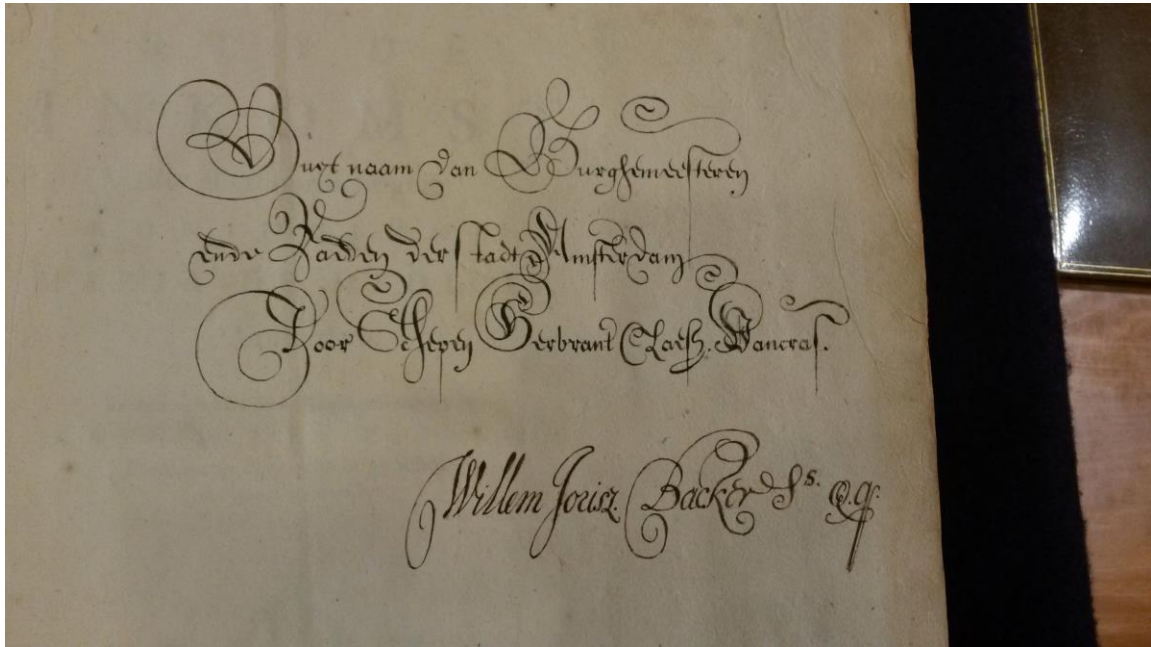 Vuyt naam van Burghemeesteren
ende Raden der stadt Amsterdam
Door Schepen Gerbrant Claesz. Pancras.
Willem Jorisz. Backer Ss. q.q.